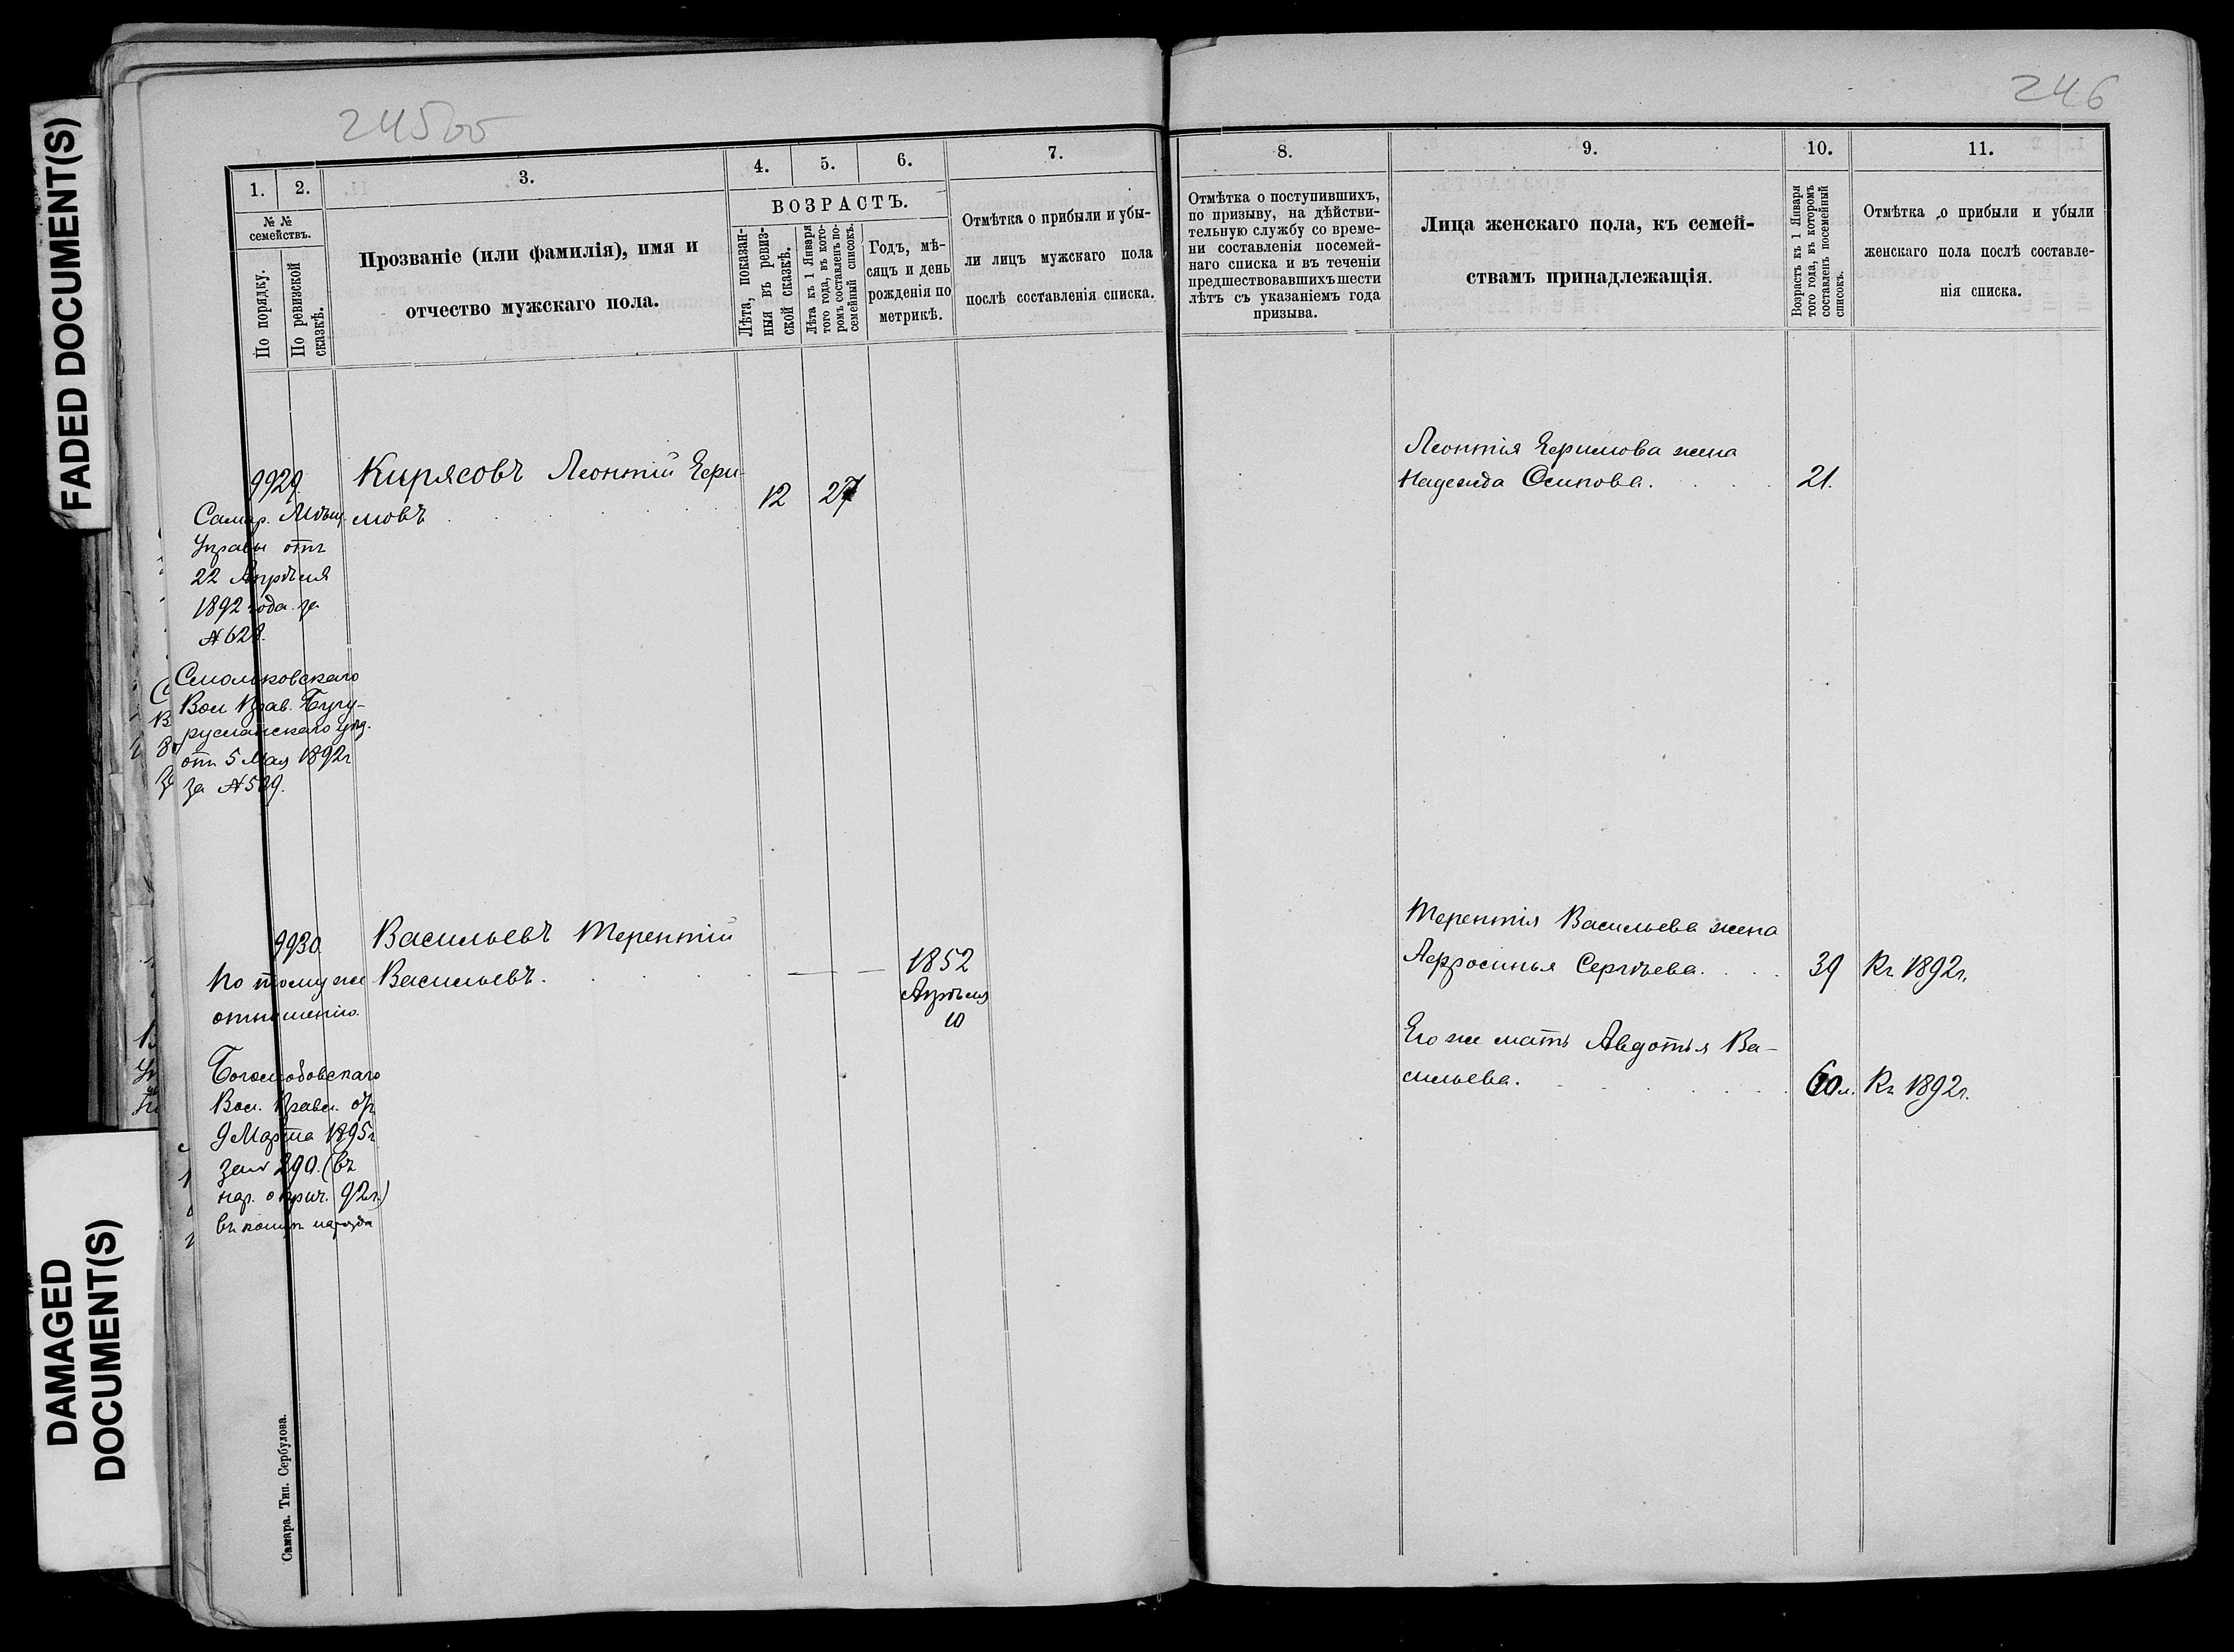 FADED DOCUMENT(S)
DAMAGED
DOCUMENT(S)
245об
1. 2. 3. 4. 5. 6. 7.
№ №
семействъ.
По порядку.
По ревизской
сказкѣ.
Прозваніе (или фамилія), имя и
отчество мужскаго пола.
ВОЗРАСТЪ.
Лѣта, показан-
ныя въ ревиз-
ской сказкѣ.
Лѣта къ 1 Января
того года, въ кото-
ромъ составленъ по-
семейный списокъ.
Годъ, мѣ-
сяцъ и день
рожденія по
метрикѣ.
Отмѣтка о прибыли и убы-
ли лицъ мужскаго пола
послѣ составленія списка.
9929. Кирясовъ Леонтій Ефи-
мовъ 12 27
Самар. Мѣщ.
Управы отъ
22 Апрѣля
1892 года за
№ 628.
Смольковскаго
Вол. Прав. Бугу-
русланскаго уѣз.
отъ 5 Мая 1892г
за № 509.
9930. Васильевъ Терентій
Васильевъ. — — 1852
Апрѣля
10
По тому же
отношенію.
Боголюбовскаго
Вол. Правл. от
9 Марта 1895г
за № 290. (въ
нар. о прич. 92г.)
въ концѣ наряда
Самара. Тип. Сербулова.
246
8. 9. 10. 11.
Отмѣтка о поступившихъ,
по призыву, на дѣйстви-
тельную службу со време-
ни составленія посемей-
наго списка и въ теченіи
предшествовавшихъ шести
лѣтъ съ указаніемъ года
призыва.
Лица женскаго пола, къ семей-
ствамъ принадлежащія.
Возрастъ къ 1 Января
того года, въ которомъ
составленъ посемейный
списокъ.
Отмѣтка о прибыли и убыли
женскаго пола послѣ составле-
нія списка.
Леонтія Ефимова жена
Надежда Осипова. 21.
Терентія Васильева жена
Афросинья Сергѣева. 39 Къ 1892г.
Его же мать Авдотья Ва-
сильева. 60 л. Къ 1892г.